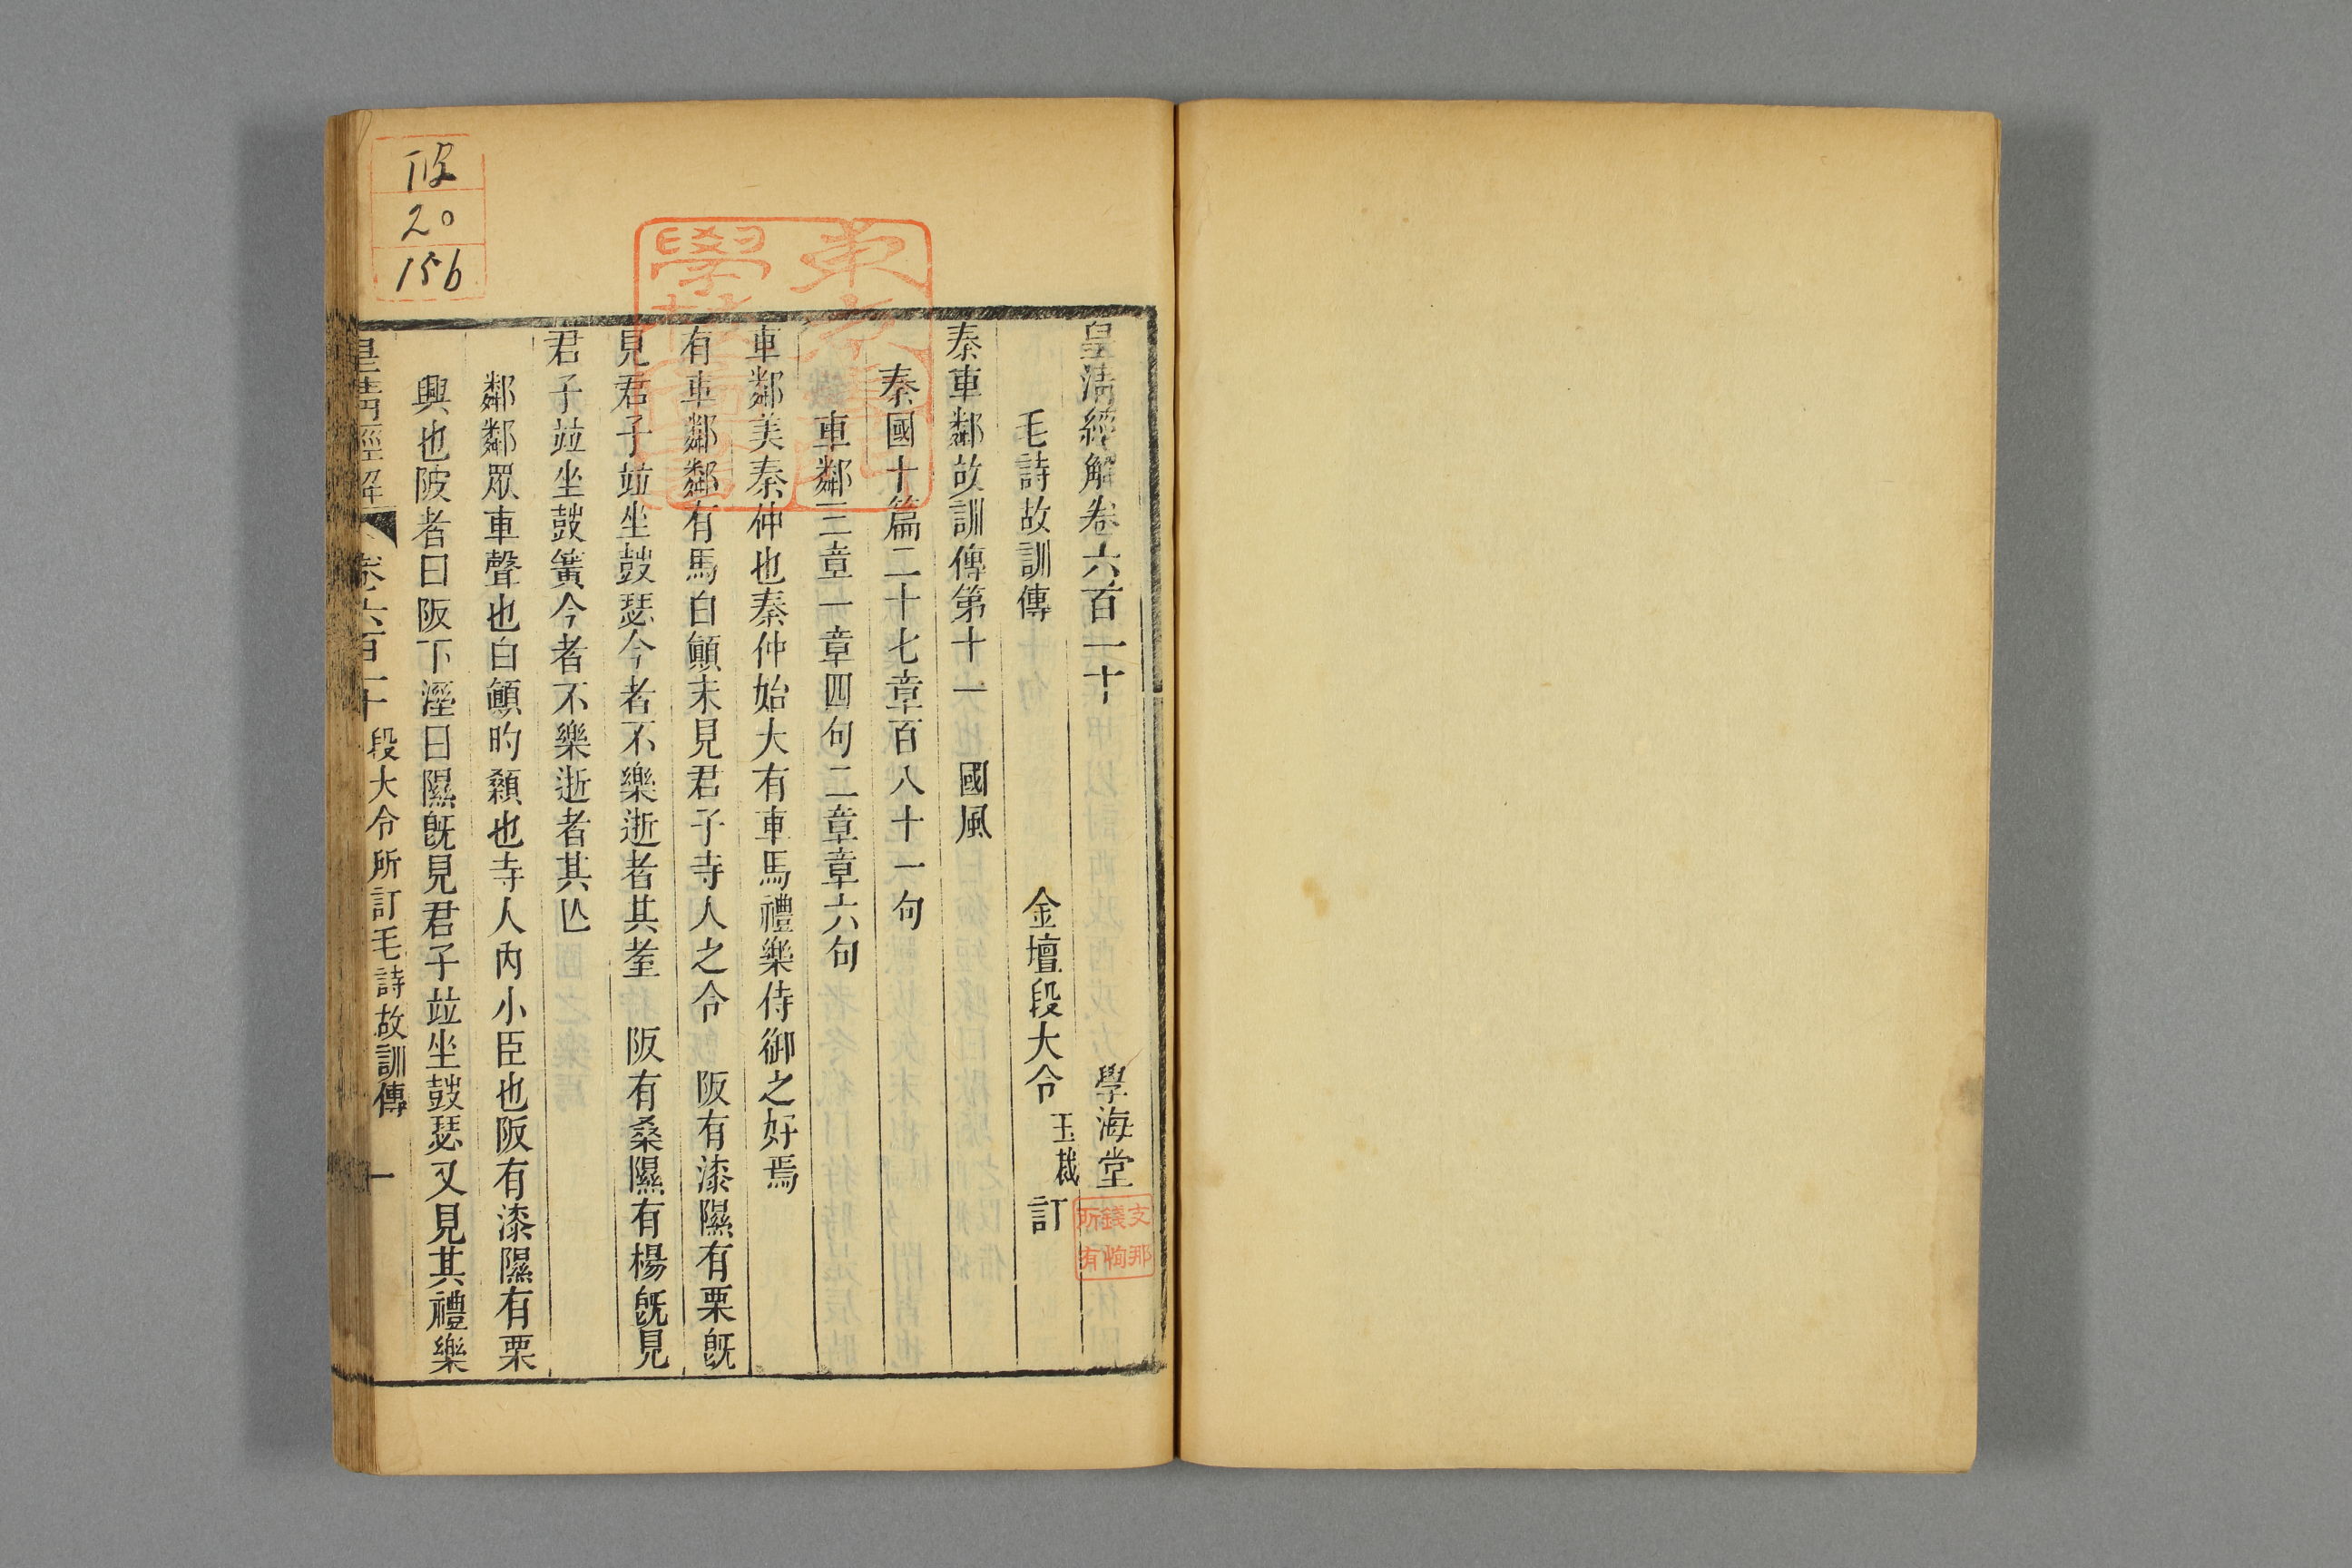 皇清經解卷六百一十
學海堂
毛詩故訓傳
金壇段大令玉裁訂
秦車鄰故訓傳第十一
國風
秦國十篇二十七章百八十一句
車鄰三章一章四句二章章六句
車鄰美秦仲也秦仲始大有車馬禮樂侍御之好焉
有車鄰鄰有馬白顚未見君子寺人之令
阪有漆隰有栗旣
見君子竝坐鼓瑟今者不樂逝者其耋
阪有桑隰有楊旣見
君子竝坐鼓簧今者不樂逝者其亾
鄰鄰眾車聲也白顚旳顙也寺人內小臣也阪有漆隰有栗
興也陂者曰阪下溼曰隰旣見君子竝坐鼓瑟又見其禮樂
皇清經解
卷六百一十
段大令所訂毛詩故訓傳
一
支那
錢恂
所有
20
156